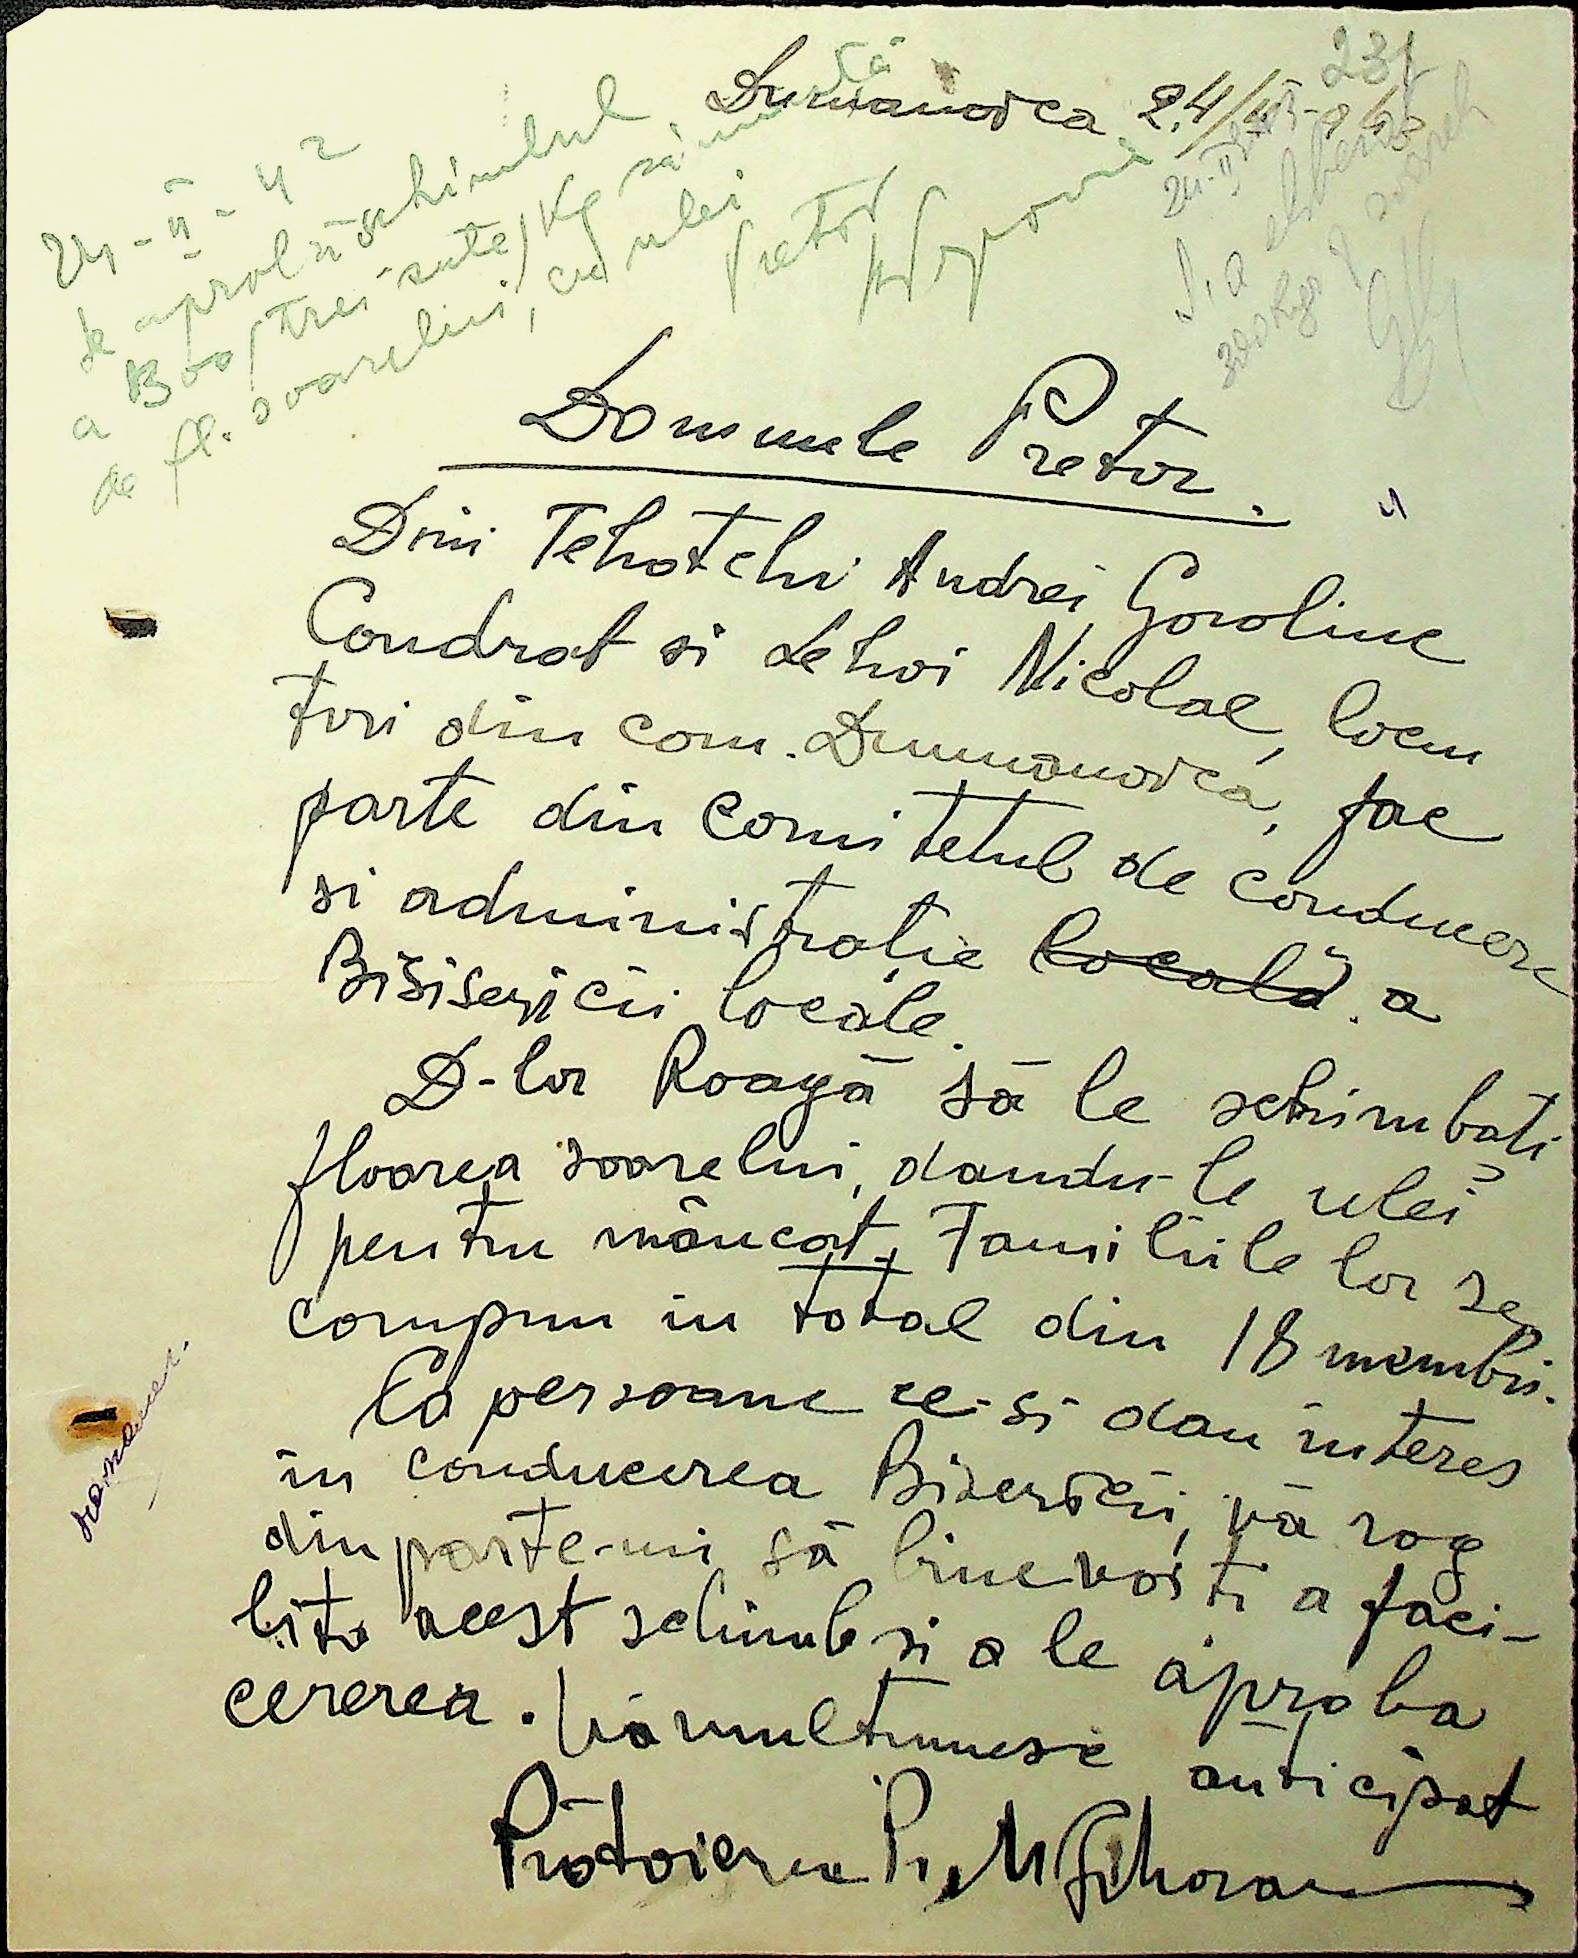 231
Dumanovca 24/II-942
24-II-42
Se aprobă schimbul
a 300/trei sute/Kg sămânță
de fl. soarelui, cu ulei
Pretor
24-II
S'a eliberat
300 kgr
Domnule Pretor.
Dnii Tehotchi Andrei, Goroline
Condrat si Lehoi Nicolae, locui
tori din com. Dumanovca, fac
parte din comitetul de conducere
si administratie locală. a
Bisisericii locale.
D-lor Roagă să le schimbati
floarea soarelui, dandu-le ulei
pentru mâncat. Familiile lor se
compun in total din 18 membri.
Ca persoane ce-si dau interes
in conducerea Bisericii, vă rog
din parte-mi să binevoiti a faci-
lita acest schimb si a le aproba
cererea. Vă multumesc anticipat
Protoiereu Pr. M